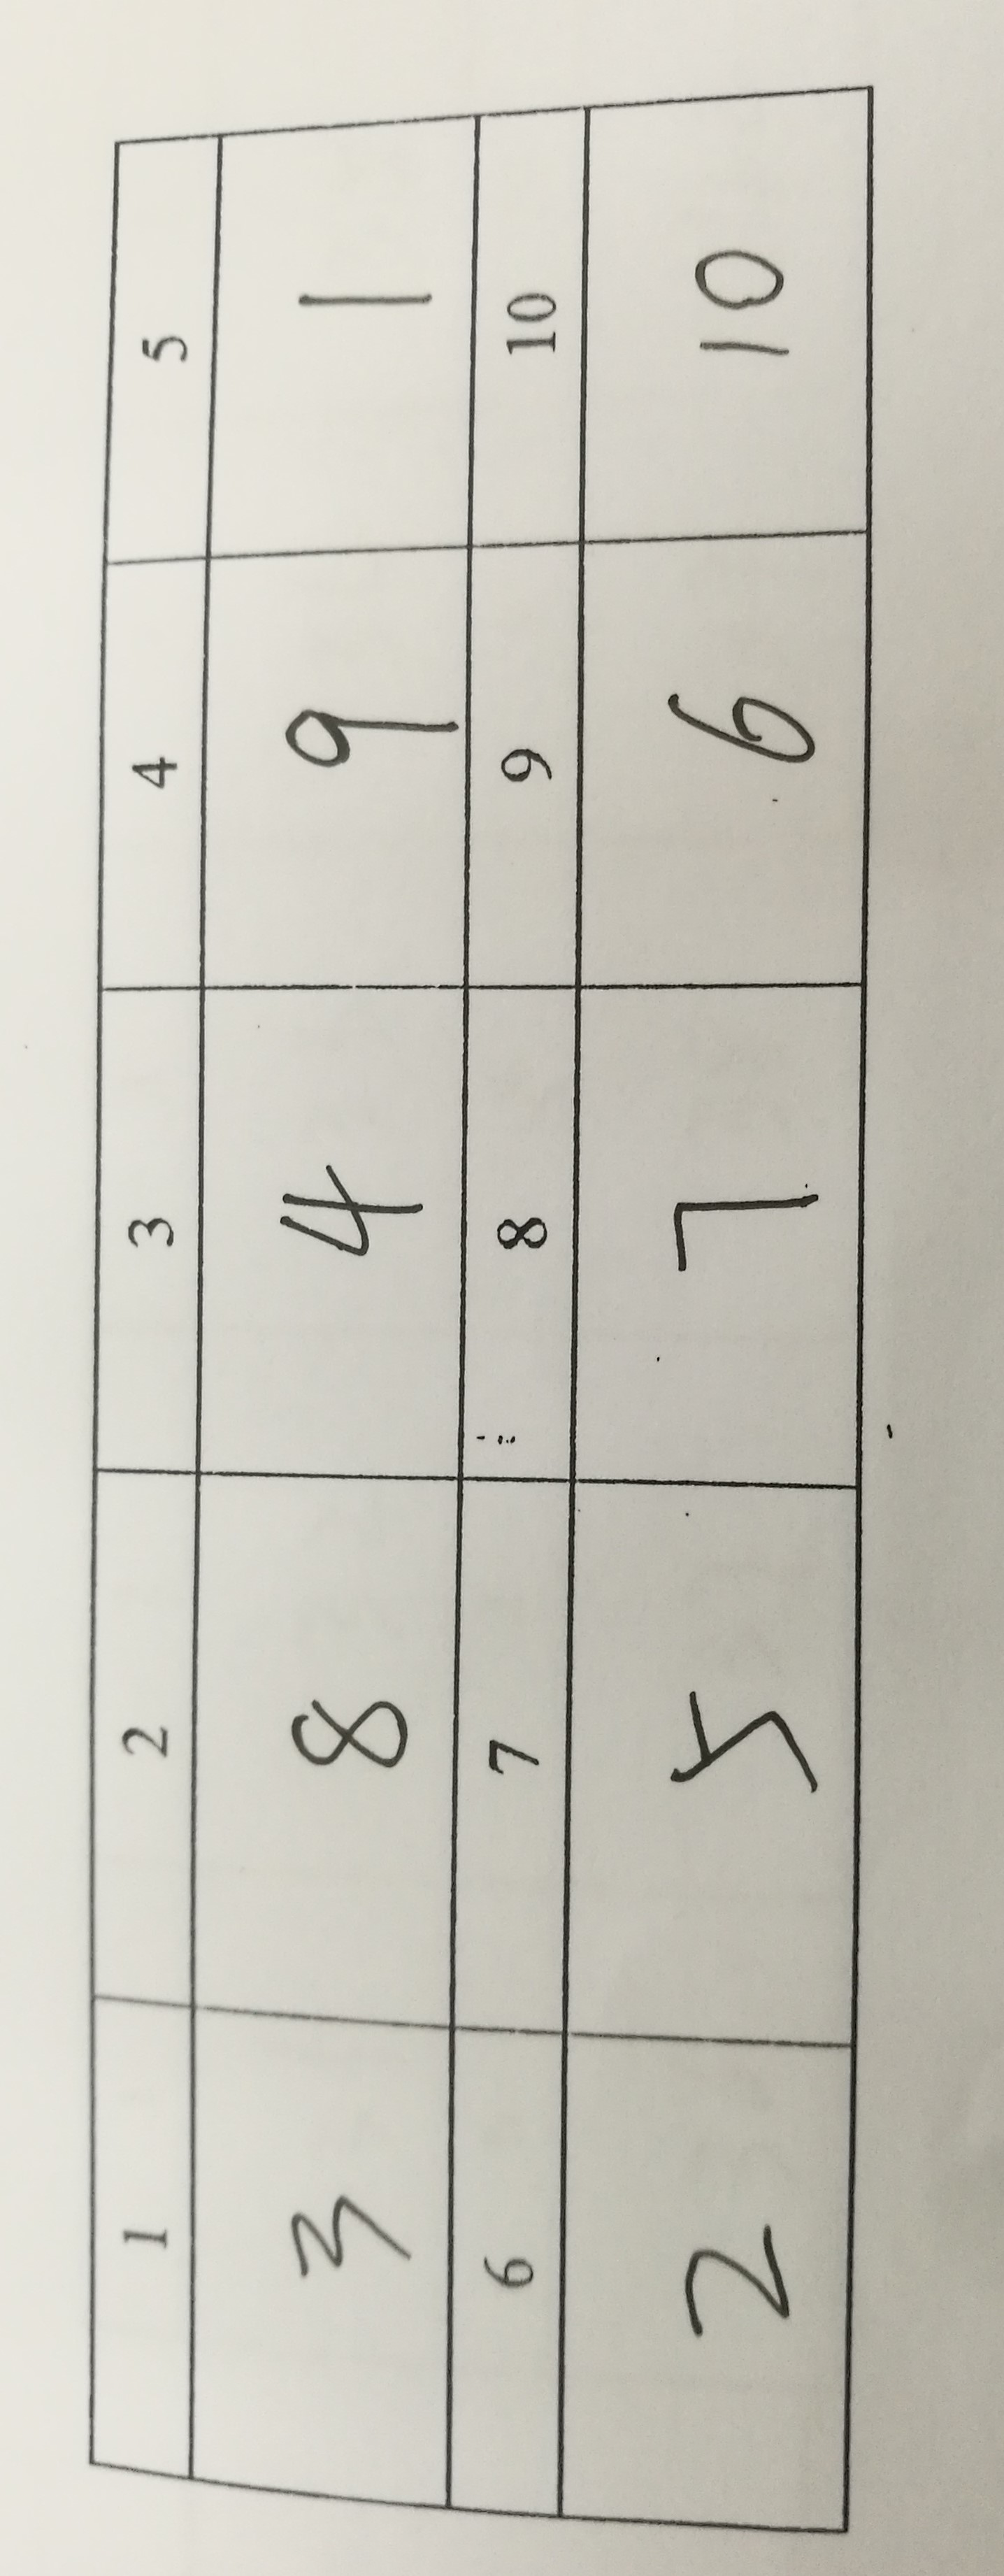 1 2 3 4 5
3 8 4 9 1
6 7 8 9 10
2 5 7 6 10